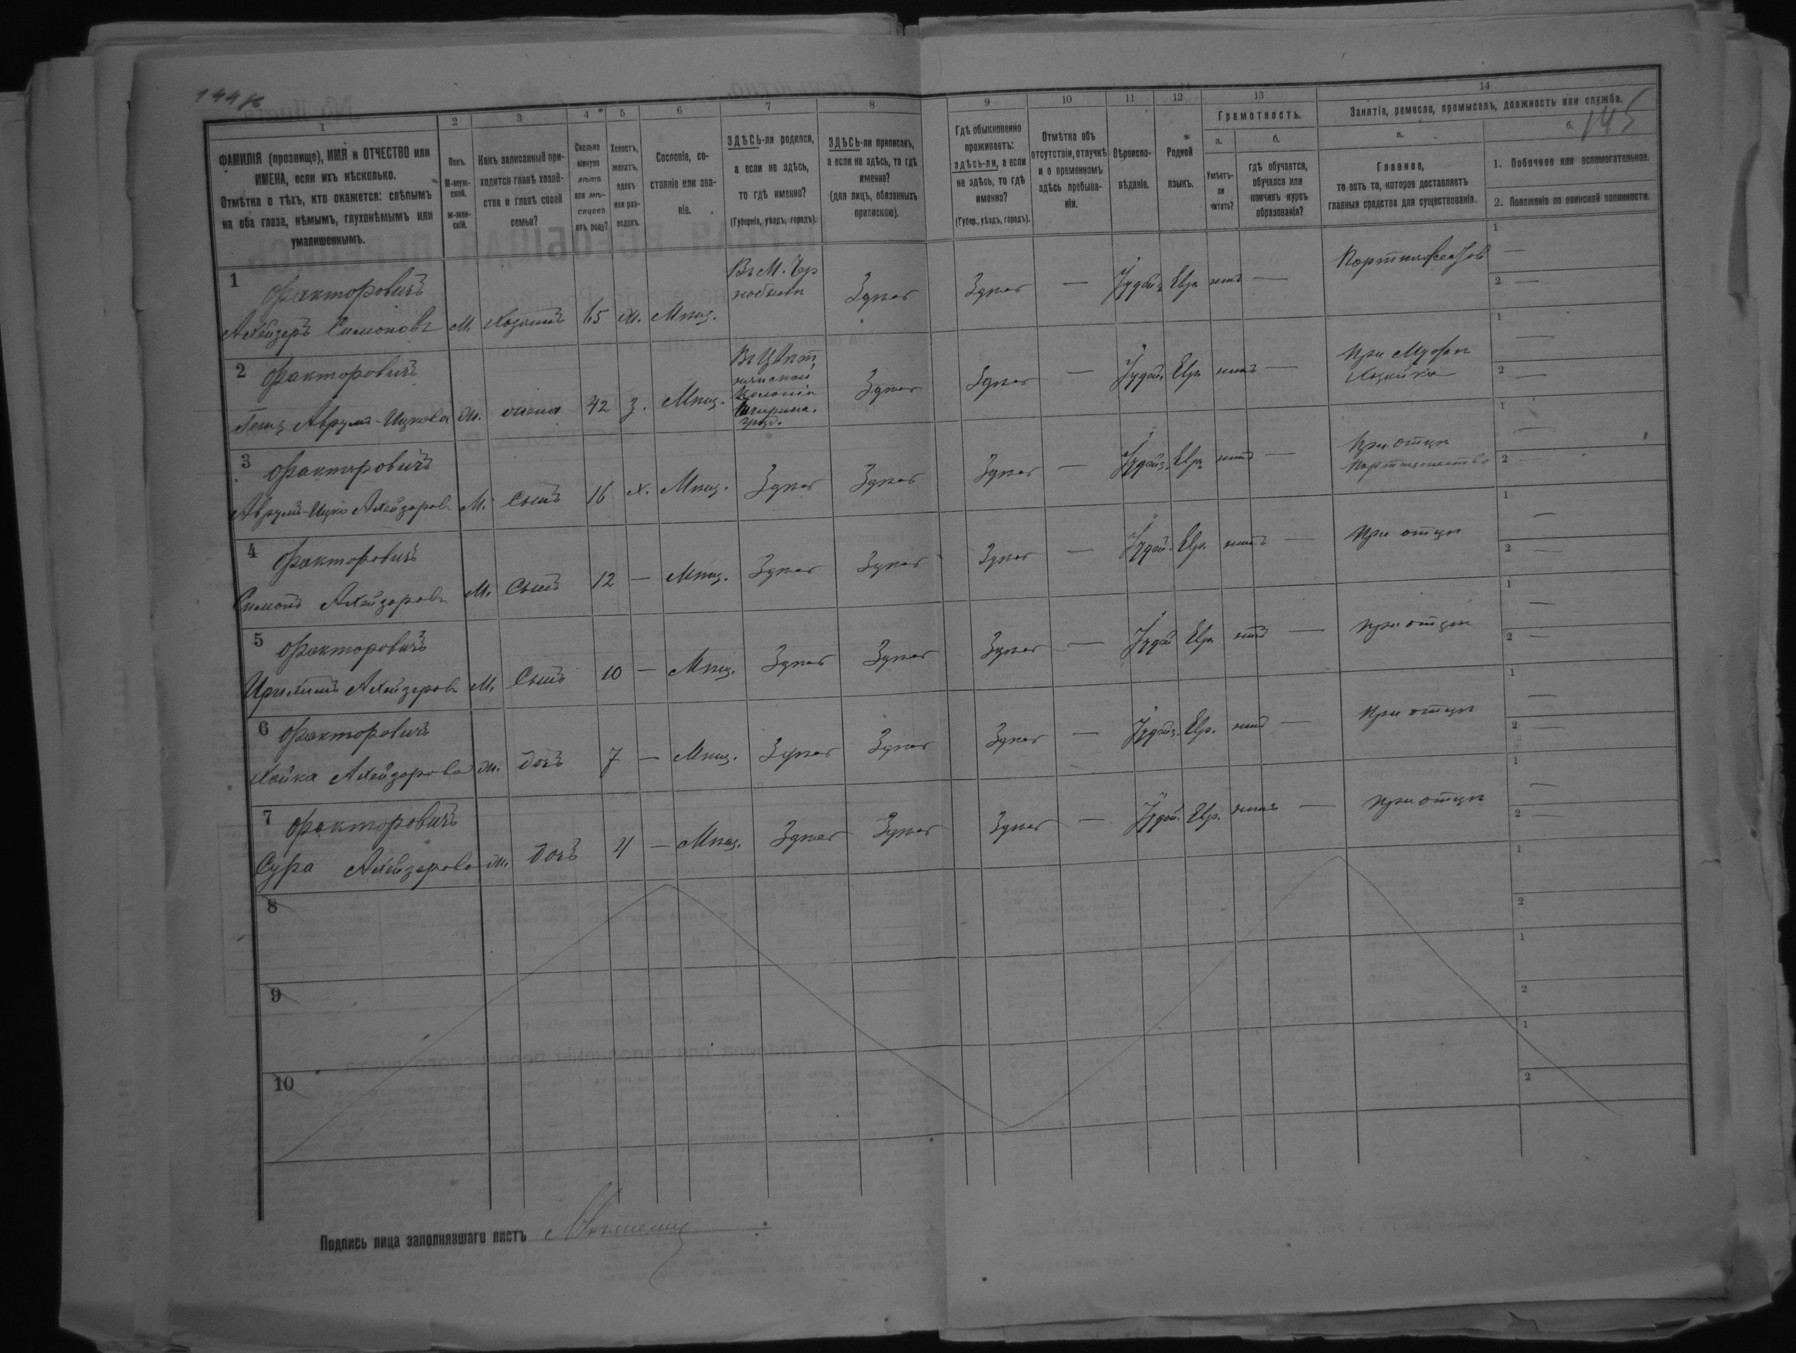 144
145
1
2
3
4
5
6
7
8
9
10
11
12
13
14
ФАМИЛІЯ (прозвище), ИМЯ и ОТЧЕСТВО или
ИМЕНА, если ихъ нѣсколько.
Отмѣтка о тѣхъ, кто окажется: слѣпымъ
на оба глаза, нѣмымъ, глухонѣмымъ или
умалишеннымъ.
Полъ.
М-муж-
ской.
ж-жен-
скій.
Какъ записанный при-
ходится главѣ хозяй-
ства и главѣ своей
семьи?
Сколько
минуло
лѣтъ
или мѣ-
сяцевъ
отъ роду?
Холостъ,
женатъ,
вдовъ
или раз-
веденъ.
Сословіе, со-
стояніе или зва-
ніе.
ЗДѢСЬ-ли родился,
а если не здѣсь,
то гдѣ именно?
(Губернія, уѣздъ, городъ).
ЗДѢСЬ-ли приписанъ,
а если не здѣсь, то гдѣ
именно?
(для лицъ, обязанныхъ
припискою).
Гдѣ обыкновенно
проживаетъ:
здѣсь-ли, а если
не здѣсь, то гдѣ
именно?
(Губер., уѣздъ, городъ).
Отмѣтка объ
отсутствіи, отлучкѣ
и о временномъ
здѣсь пребыва-
ніи.
Вѣроиспо-
вѣданіе.
Родной
языкъ.
Грамотность.
а.
б.
Умѣетъ-
ли
читать?
гдѣ обучается,
обучался или
кончилъ курсъ
образованія?
Занятіе, ремесло, промыселъ, должность или служба.
а.
б.
Главное,
то есть то, которое доставляетъ
главныя средства для существованія.
1. Побочное или вспомогательное.
2. Положеніе по воинской повинности.
1 Факторовичъ
Алейзеръ Симоновъ М. Хозяинъ 65 ж. Мѣщ. Въ М. Чер
нобылѣ Здѣсь Здѣсь — Іудей. Евр. нѣтъ —
1 —
2 —
2 Факторовичъ
Аврумъ-Ицкова ж. жена 42 з. Мѣщ. Здѣсь Здѣсь — Іудей. Евр. нѣтъ — При Мужѣ
Хозяйка
1 —
2 —
3 Факторовичъ
Аврумъ-Ицко Алейзеровъ М. Сынъ 16 х. Мѣщ. Здѣсь Здѣсь Здѣсь — Іудей. Евр. нѣтъ — При отцѣ
1 —
2 —
4 Факторовичъ
Симонъ Алейзеровъ М. Сынъ 12 — Мѣщ. Здѣсь Здѣсь Здѣсь — Іудей. Евр. нѣтъ — При отцѣ
1 —
2 —
5 Факторовичъ
Алейзеровъ М. Сынъ 10 — Мѣщ. Здѣсь Здѣсь Здѣсь — Іудей Евр. нѣтъ — при отцѣ
1 —
2 —
6 Факторовичъ
Хайка Алейзерова ж. дочь 7 — Мѣщ. Здѣсь Здѣсь Здѣсь — Іудей. Евр. нѣтъ — При отцѣ
1 —
2 —
7 Факторовичъ
Сура Алейзерова ж. дочь 4 — Мѣщ. Здѣсь Здѣсь Здѣсь — Іудей. Евр. нѣтъ — при отцѣ
1 —
2 —
8
1
2
9
1
2
10
1
2
Подпись лица заполнявшаго листъ